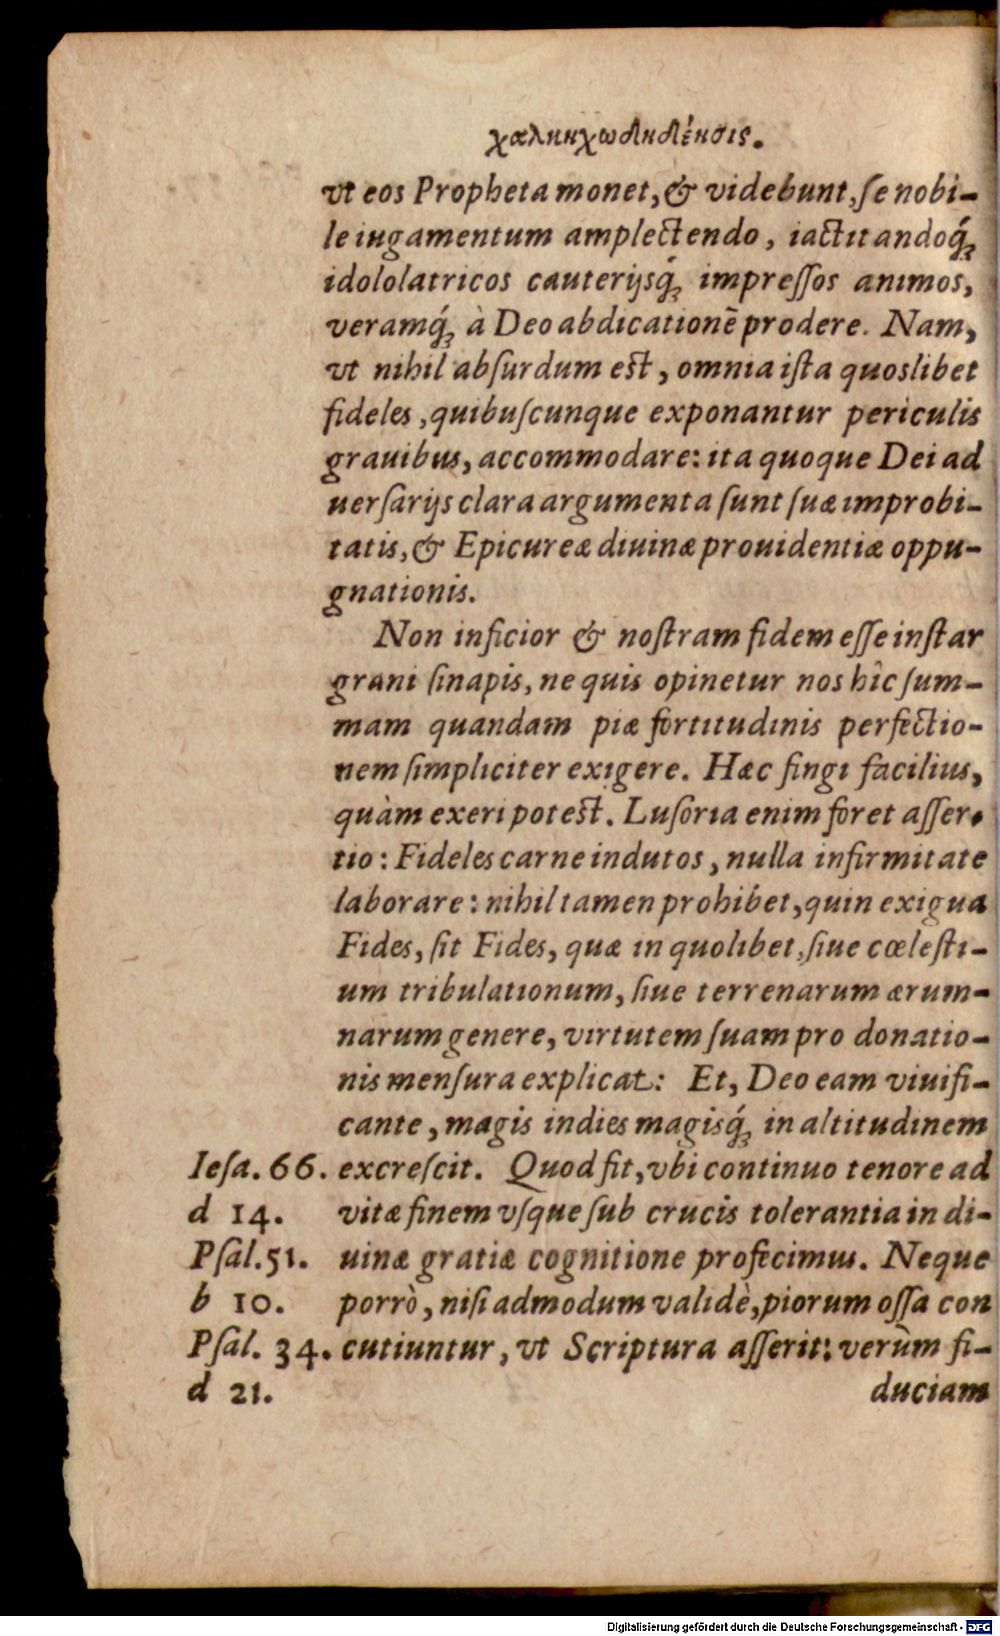 vt eos Propheta monet, & videbunt, ſe nobi-
le iugamentum amplectendo, iactitandoq́ꝫ
idololatricos cauterijsq́ꝫ impreſſos animos,
veramq́ꝫ à Deo abdicationē prodere. Nam,
vt nihil abſurdum est, omnia iſta quoslibet
fideles, quibuſcunque exponantur periculis
grauibus, accommodare: ita quoque Dei ad
uerſarijs clara argumenta ſunt ſuæ improbi-
tatis, & Epicureæ diuinæ prouidentiæ oppu-
gnationis.
Non inficior & noſtram fidem eſſe inſtar
grani ſinapis, ne quis opinetur nos hîc ſum-
mam quandam piæ fortitudinis perfectio-
nem ſimpliciter exigere. Hæc fingi facilius,
quàm exeri potest. Luſoria enim foret aſſer-
tio: Fideles carne indutos, nulla infirmitate
laborare: nihil tamen prohibet, quin exigua
Fides, ſit Fides, quæ in quolibet, ſiue cœleſti-
um tribulationum, ſiue terrenarum ærum-
narum genere, virtutem ſuam pro donatio-
nis menſura explicat: Et, Deo eam viuifi-
cante, magis indies magisq́ꝫ in altitudinem
Ieſa. 66. excreſcit. Quod fit, vbi continuo tenore ad
d 14. vitæ finem vſque ſub crucis tolerantia in di-
Pſal. 51. uinæ gratiæ cognitione profecimus. Neque
b 10. porrò, niſi admodum validè, piorum oſſa con
Pſal. 34. cutiuntur, vt Scriptura aſſerit: verùm fi-
d 21. duciam
Digitalisierung gefördert durch die Deutsche Forschungsgemeinschaft - DFG